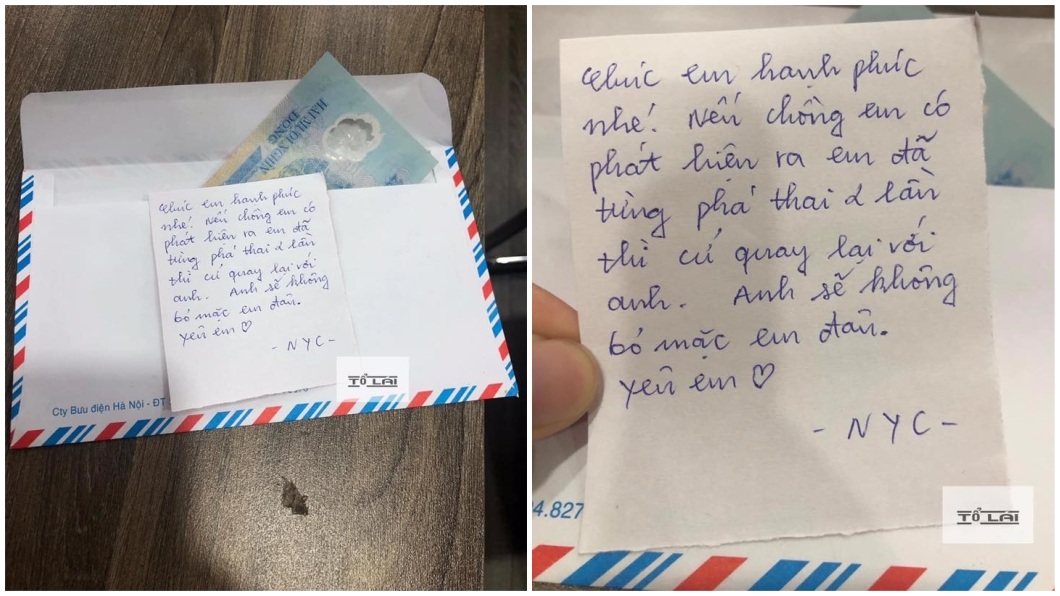 HAI MƯƠI NGHÌN
ĐỒNG
Chúc em hạnh phúc
nhé! Nếu chồng em có
phát hiện ra em đã
từng phá thai 2 lần
thì cứ quay lại với
anh. Anh sẽ không
bỏ mặc em đâu.
Yêu em ♡
- NYC -
TỔ LÁI
Cty Bưu điện Hà Nội - ĐT
Chúc em hạnh phúc
nhé! Nếu chồng em có
phát hiện ra em đã
từng phá thai 2 lần
thì cứ quay lại với
anh. Anh sẽ không
bỏ mặc em đâu.
Yêu em ♡
- NYC -
4.827
TỔ LÁI